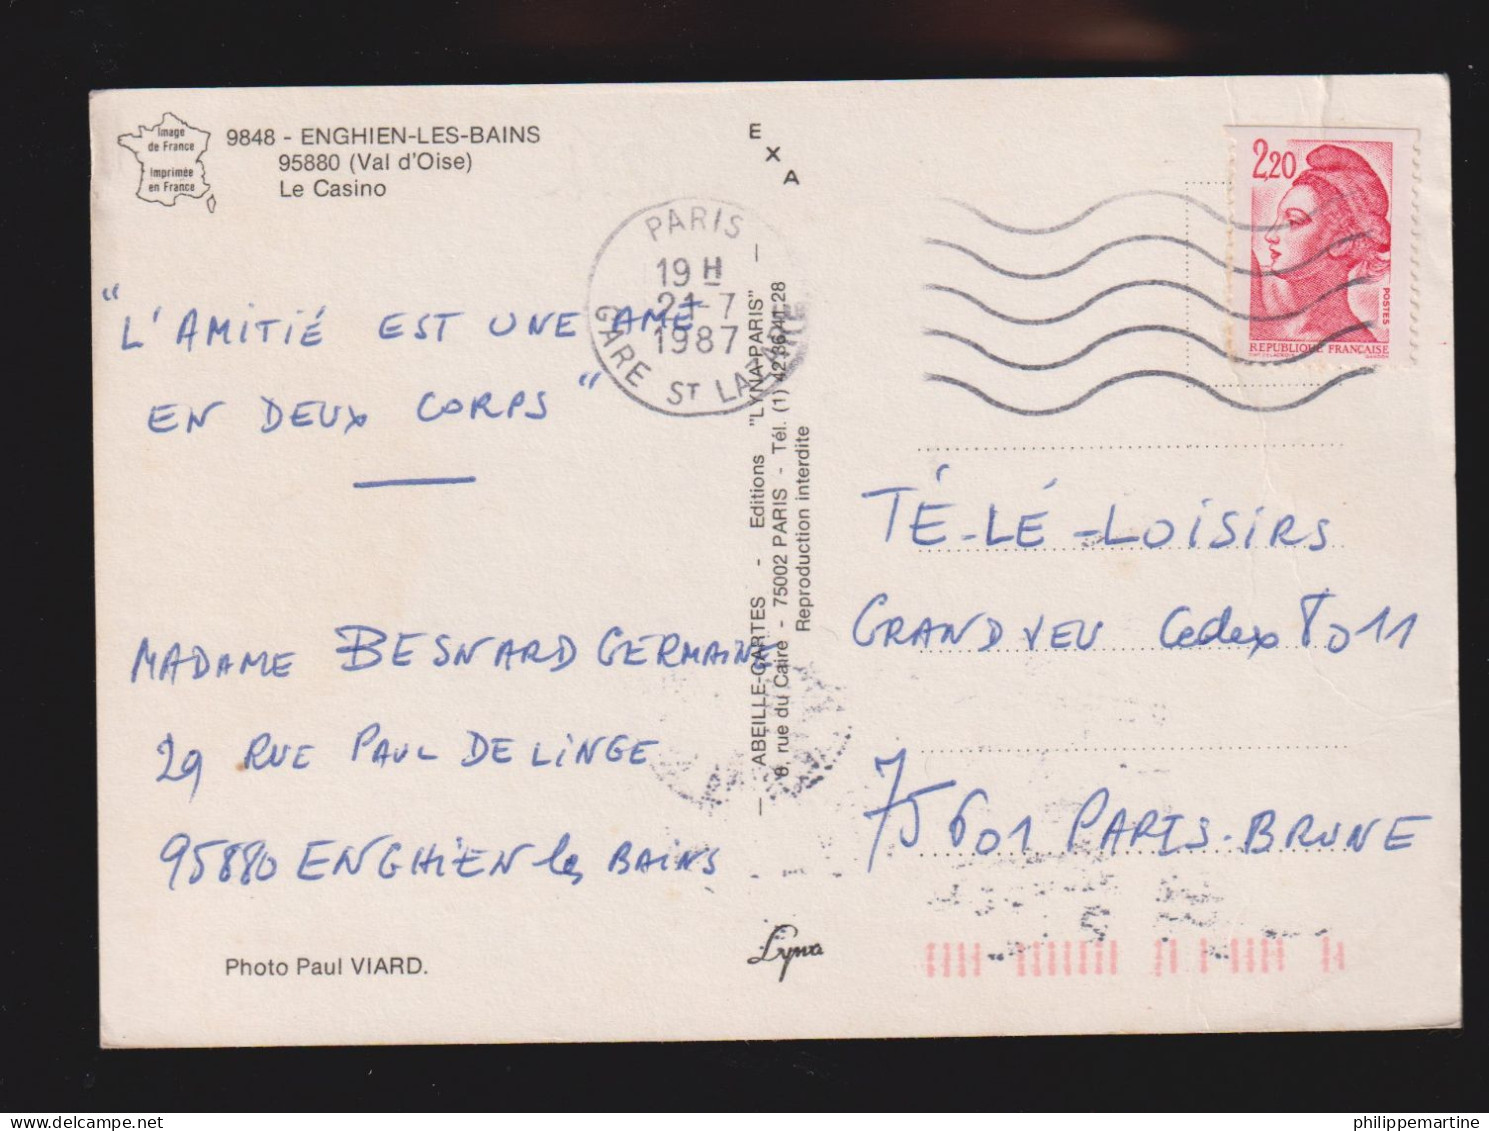 Image
de France
Imprimée
en France
9848 - ENGHIEN-LES-BAINS
95880 (Val d'Oise)
Le Casino
EXA
PARIS
19 H
21-7
1987
GARE ST LAZARE
2,20
POSTES
REPUBLIQUE FRANÇAISE
"L'AMITIÉ EST UNE AME
EN DEUX CORPS"
MADAME BESNARD GERMAINE
29 RUE PAUL DELINGE
95880 ENGHIEN les BAINS
Photo Paul VIARD.
— ABEILLE-CARTES - Editions "LYNA-PARIS" —
8, rue du Caire - 75002 PARIS - Tél. (1) 42.36.41.28
Reproduction interdite
Lyna
TÉ-LÉ-LOISIRS
GRAND JEU Cedex 8011
75601 PARIS-BRUNE
philippemartine